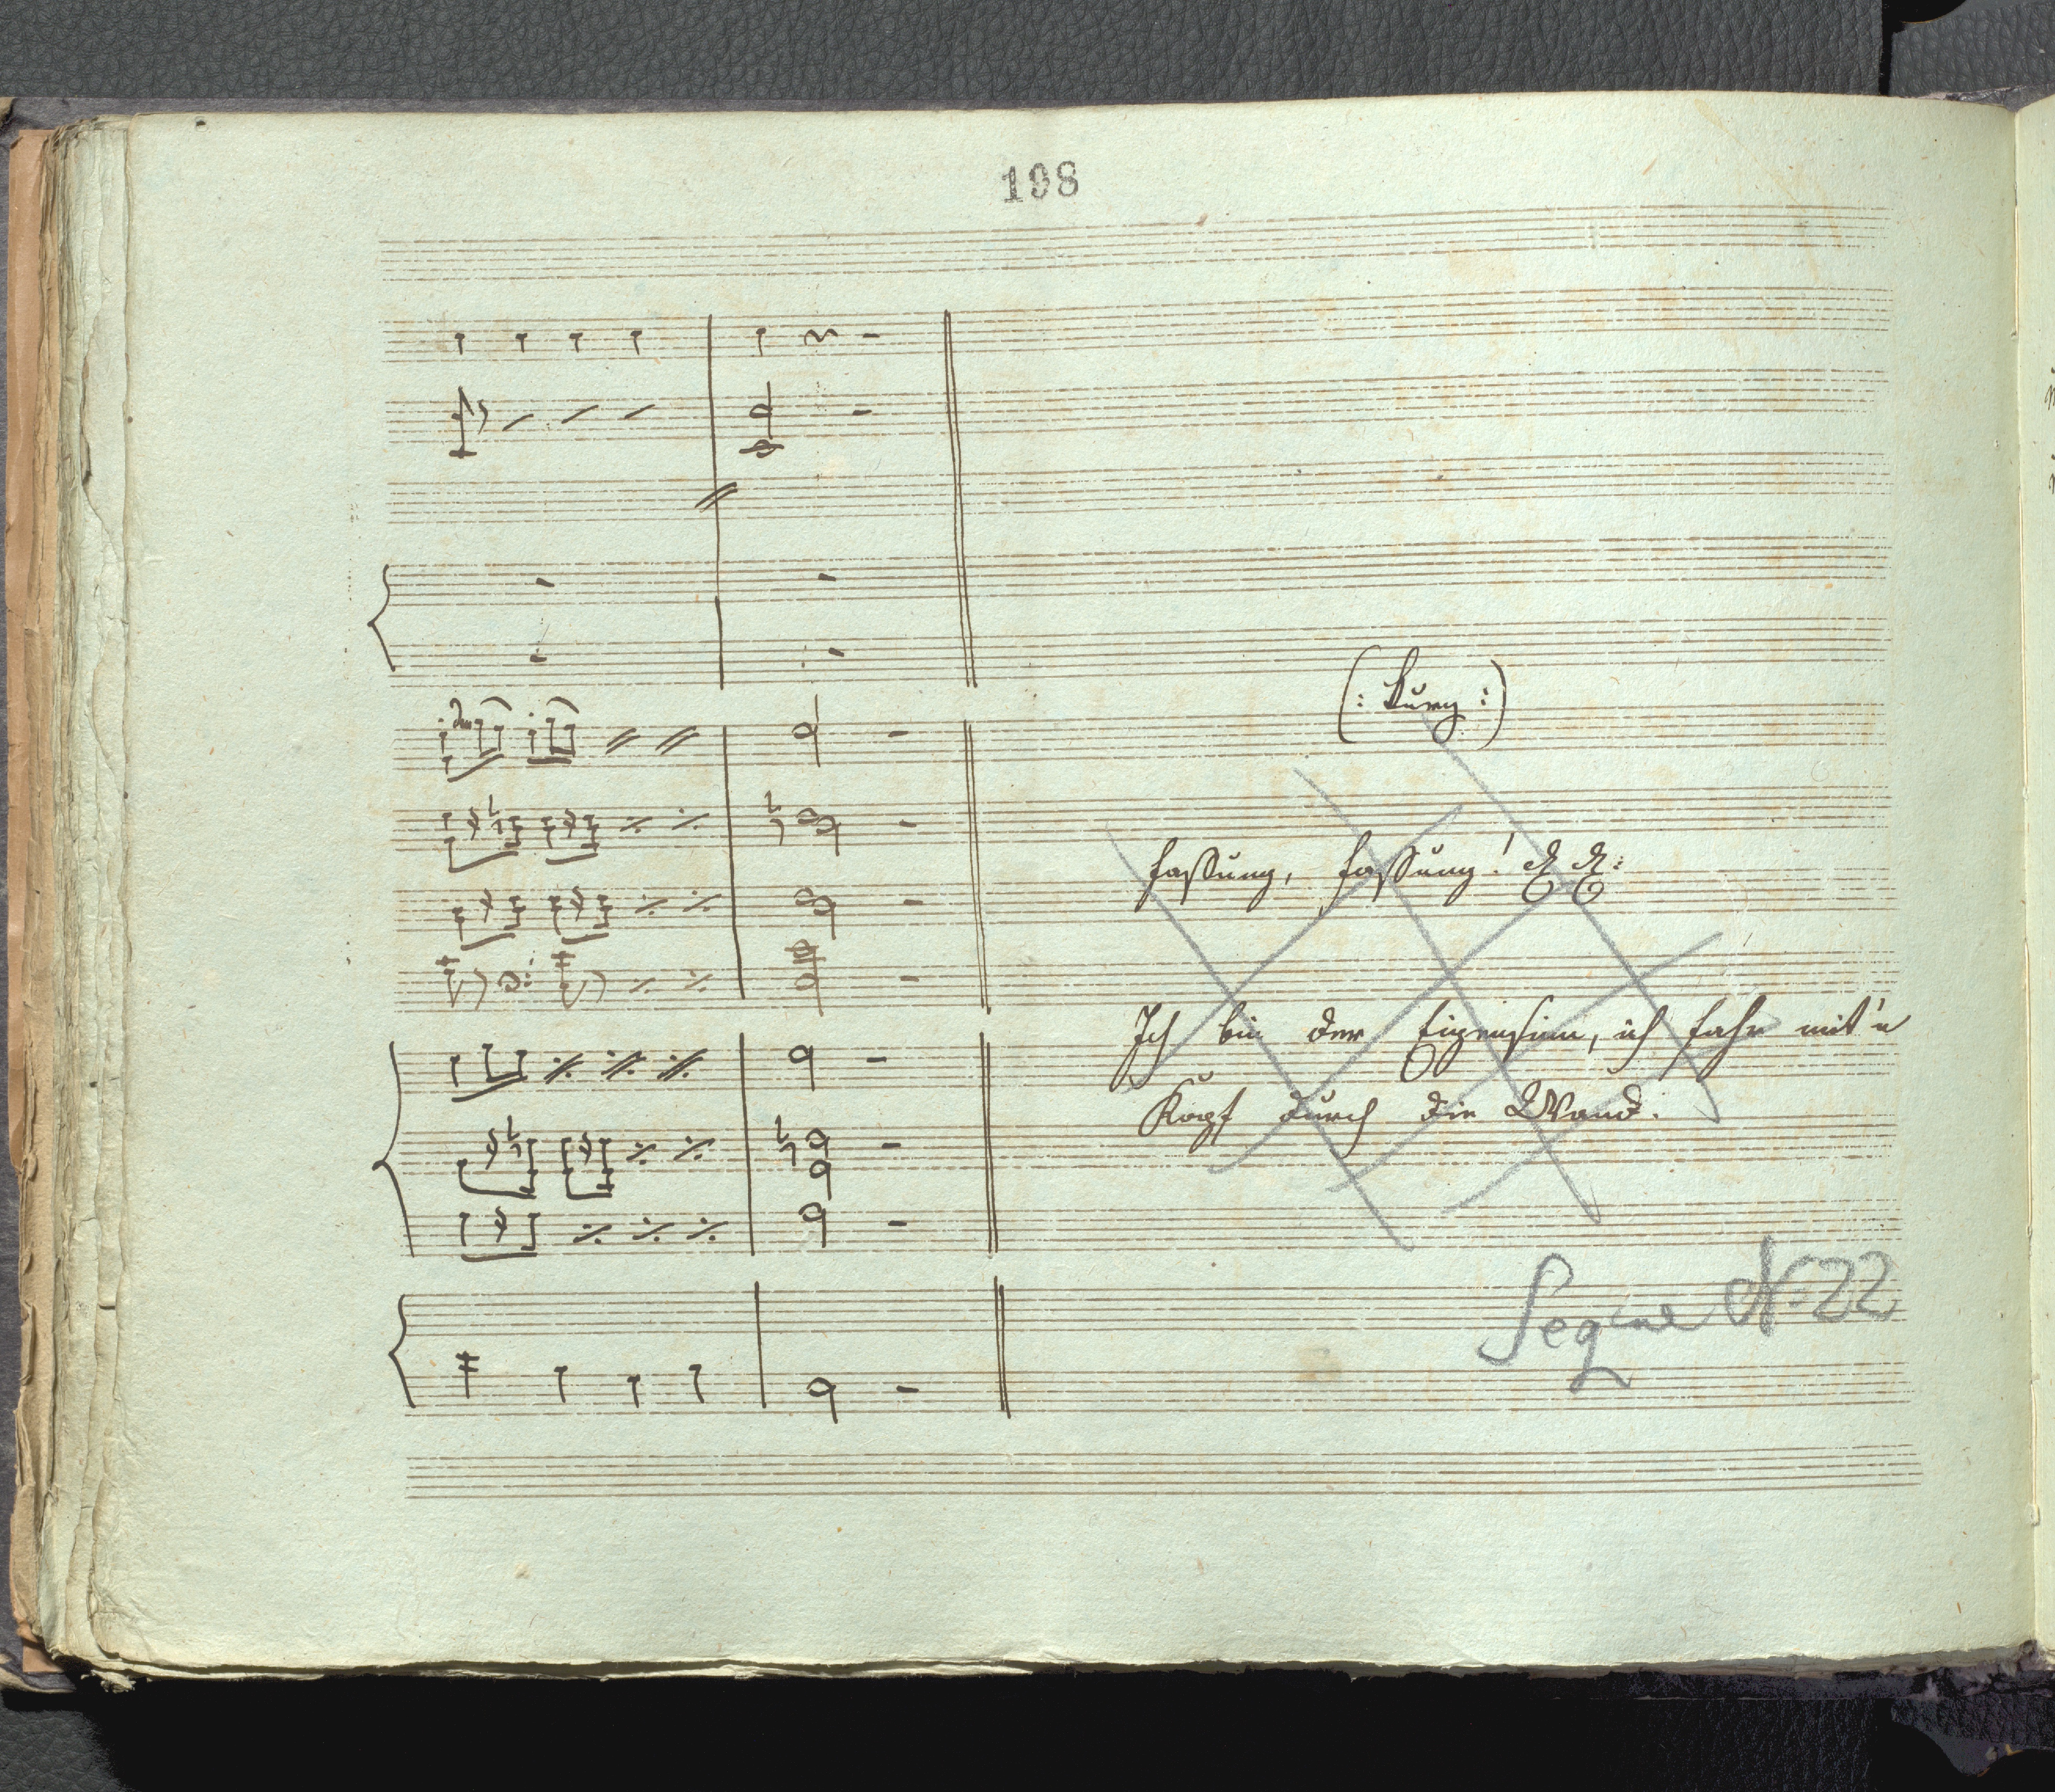 198
(: kurz :)
Fassung, Fassung! &. &.
Ich bin der Eigensinn, ich fahr mit'n
Kopf durch die Wand.
Segue N: 22